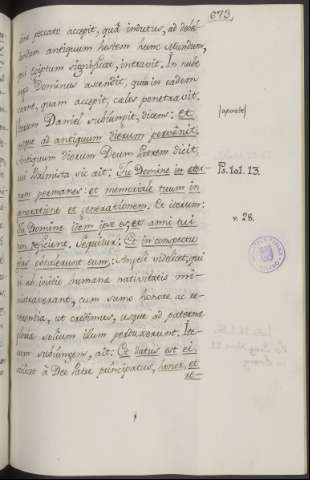 673.
sine peccato accepit, quâ indutus, ad debel-
landum antiquum hostem hunc Mundum,
qui Egiptum significat, intravit. In nube
ergo Dominus ascendit, quia in eadem
carne, quam accepit, cælos penetravit.
Daniel subiumpit, dicens: et
usque ad antiquum dierum pervênit.
Antiquum dierum Deum Patrem dicit,
cui Psalmista sic ait: Tu Domine in æter-
num permanes: et memoriale tuum in
generatione et generationem. Et iterum:
Tu Domine idem ipse es, et anni tui
non deficient. Sequitur: Et in conspectu
eius obtulerunt eum: Angeli videlicet, qui
ei ab initio humanæ nativitatis mi-
nistraverant, cum summo honore ac re-
verentia, ut credimus, usque ad paternæ
solium illum perduxerunt. In-
subiungens, ait: Et datus est ei,
scilicet à Deo Patre principatus, honor, et
re-
(aparte)
Ps. 101. 13.
v. 28.